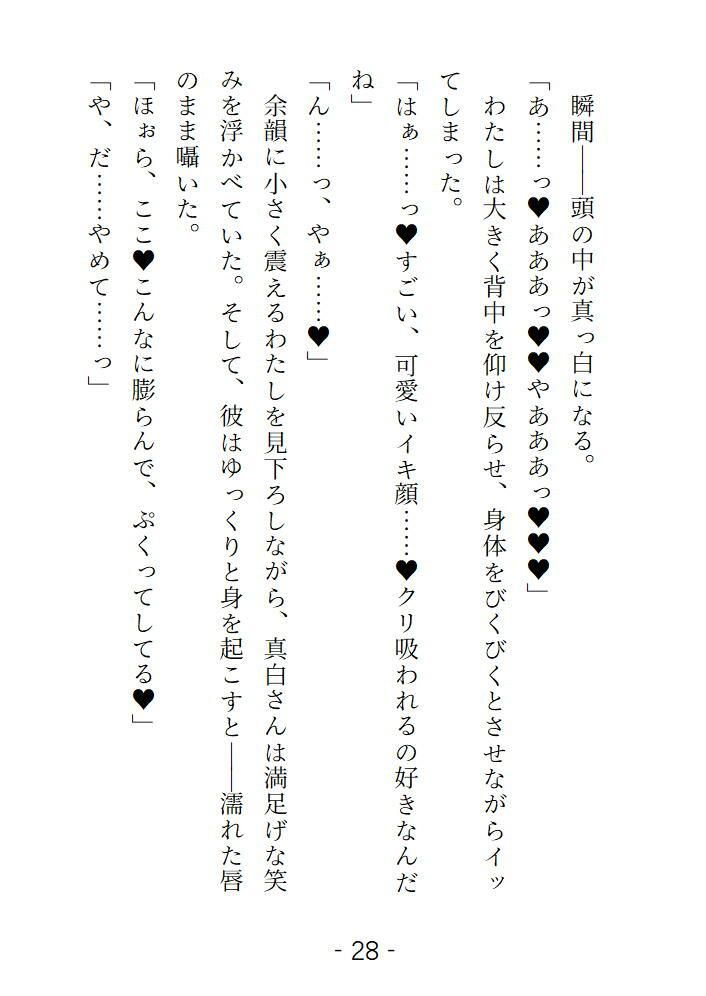 瞬間――頭の中が真っ白になる。
「あ……っ♥あああっ♥♥やあああっ♥♥♥」
わたしは大きく背中を仰け反らせ、身体をびくびくとさせながらイッ
てしまった。
「はぁ……っ♥すごい、可愛いイキ顔……♥クリ吸われるの好きなんだ
ね」
「ん……っ、やぁ……♥」
余韻に小さく震えるわたしを見下ろしながら、真白さんは満足げな笑
みを浮かべていた。そして、彼はゆっくりと身を起こすと――濡れた唇
のまま囁いた。
「ほぉら、ここ♥こんなに膨らんで、ぷくってしてる♥」
「や、だ……やめて……っ」
- 28 -